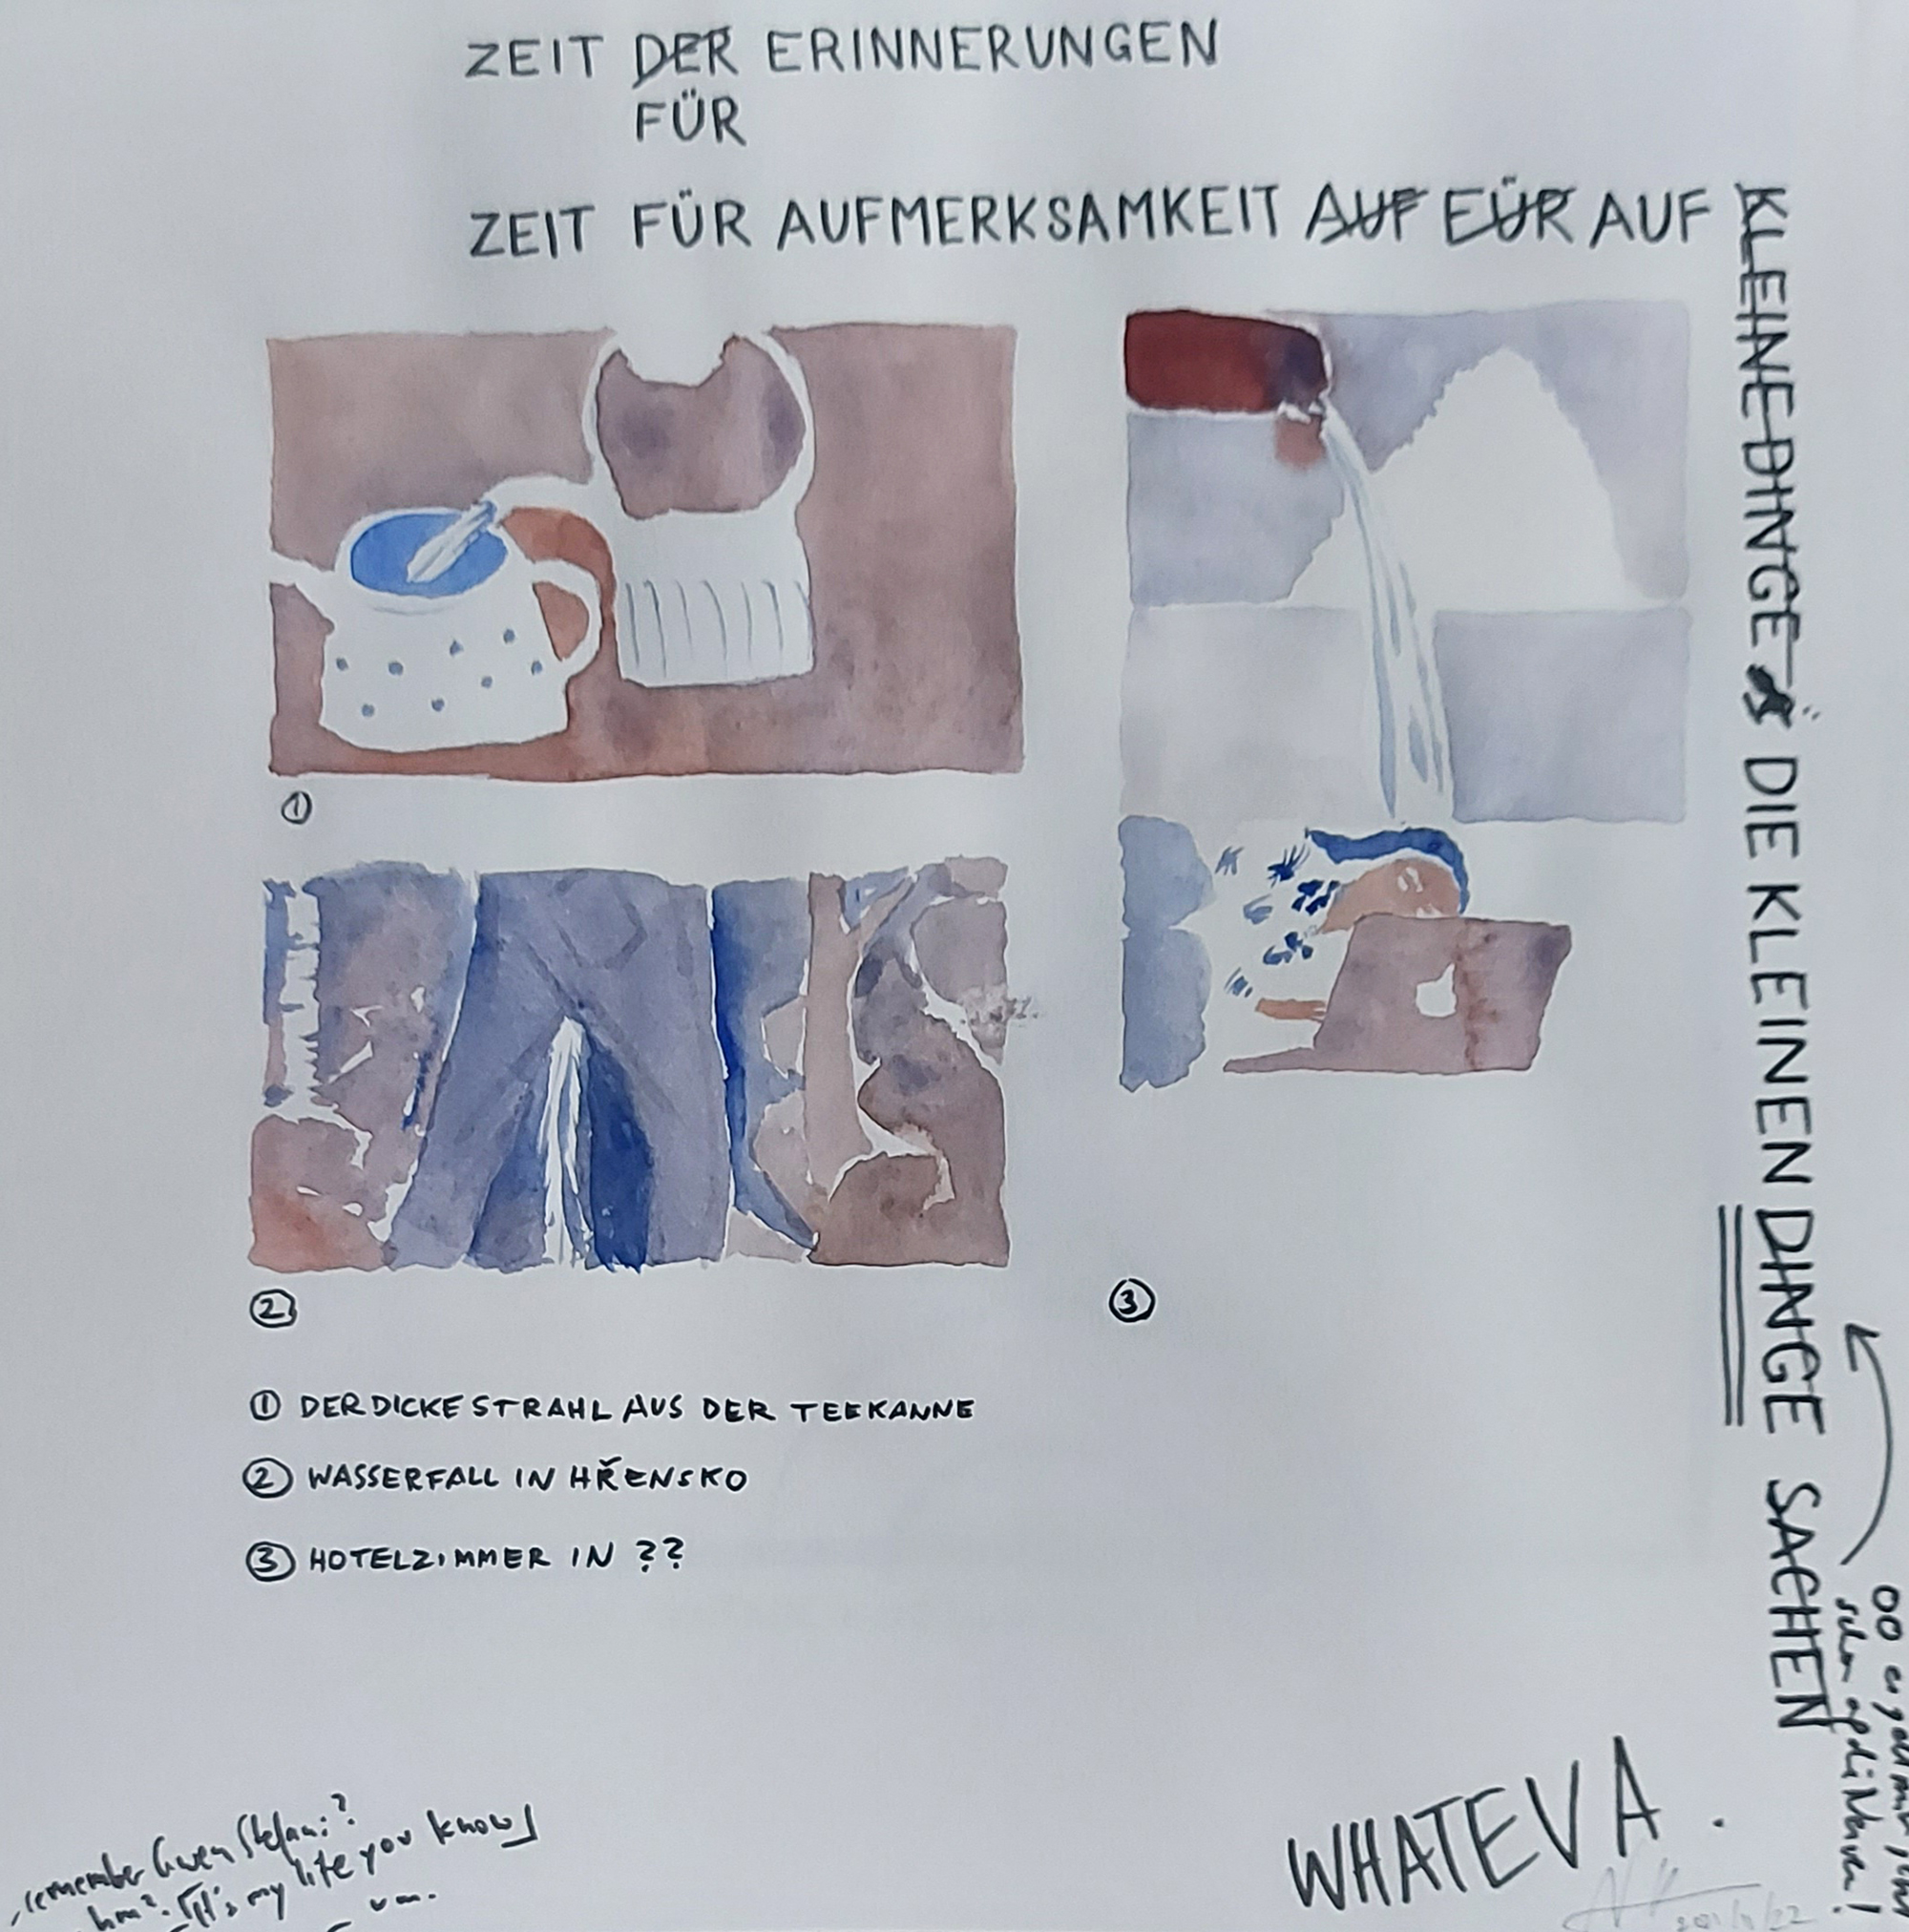 ZEIT DER ERINNERUNGEN
FÜR
ZEIT FÜR AUFMERKSAMKEIT AUF FÜR AUF
KLEINE DINGE DIE KLEINEN DINGE SACHEN
①
②
③
① DER DICKE STRAHL AUS DER TEEKANNE
② WASSERFALL IN HŘENSKO
③ HOTELZIMMER IN ??
schon auf die Nerven!
WHATEVA.
remember Gwen Stefani?
hm? It's my life you know